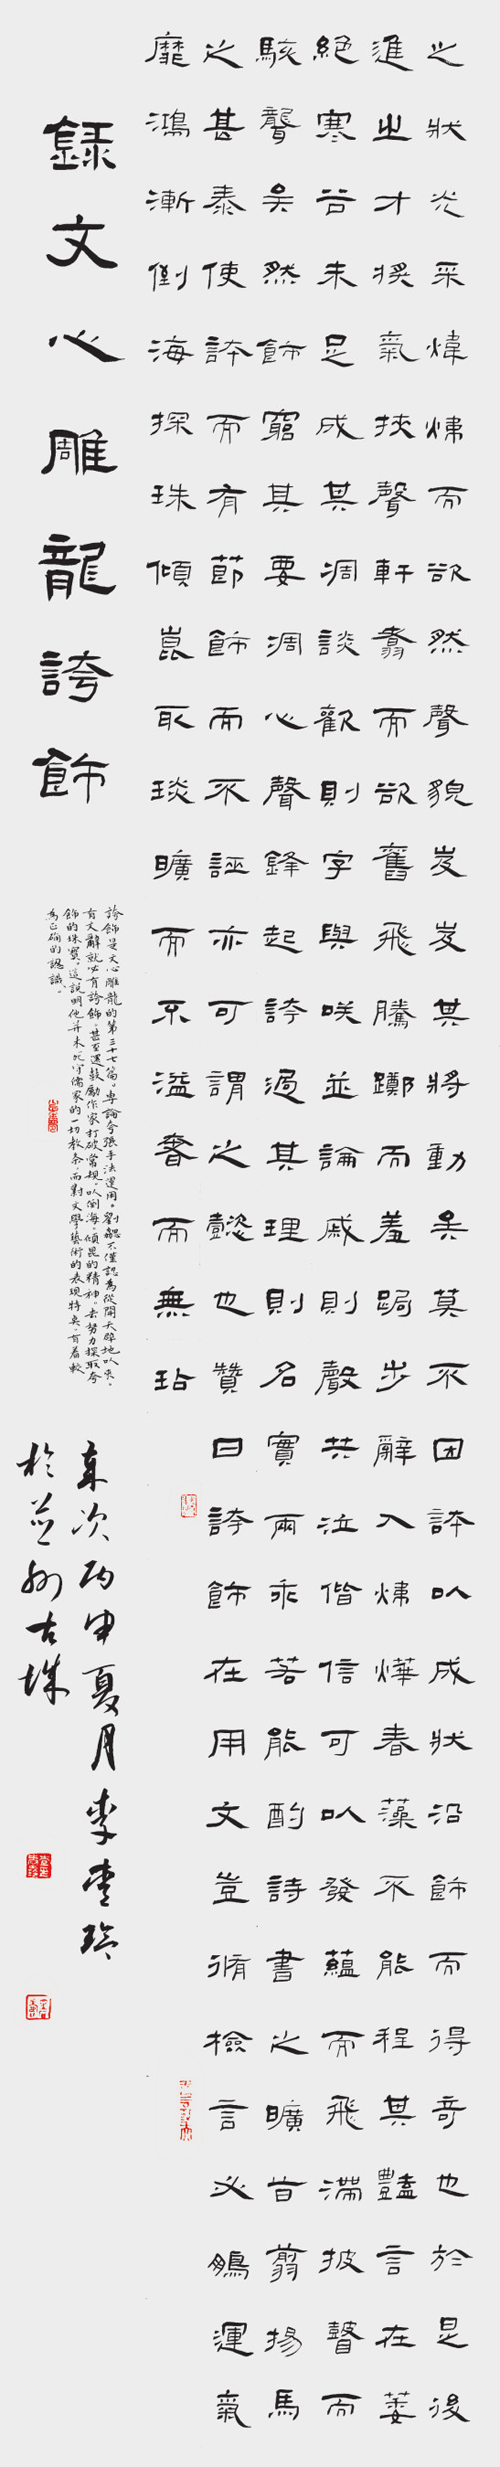 之狀光采煒煒而欲然聲貌岌岌其將動矣莫不因誇以成狀沿飾而得奇也於是後
進之才獎氣挾聲軒翥而欲奮飛騰躑而羞跼步辭入煒燁春藻不能程其豔言在萎
絕寒谷未足成其凋談歡則字與咲並論戚則聲共泣偕信可以發蘊而飛滯披瞽而
駭聾矣然飾窮其要凋心聲鋒起誇過其理則名實兩乖若能酌詩書之曠旨翦揚馬
之甚泰使誇而有節飾而不誣亦可謂之懿也贊曰誇飾在用文豈循檢言必鵬運氣
靡鴻漸倒海探珠傾崑取琰曠而不溢奢而無玷
錄文心雕龍誇飾
誇飾是文心雕龍的第三十七篇。專論夸張手法運用。劉勰不僅認為從開天辟地以來，
有文辭就必有誇飾。甚至還鼓勵作家打破常規。以倒海、傾昆的精神。去努力探取夸
飾的珠寶。這說明他并未死守儒家的一切教條，而對文學藝術的表現特點，有着較
為正确的認識。
歲次丙申夏月李
於並州古城